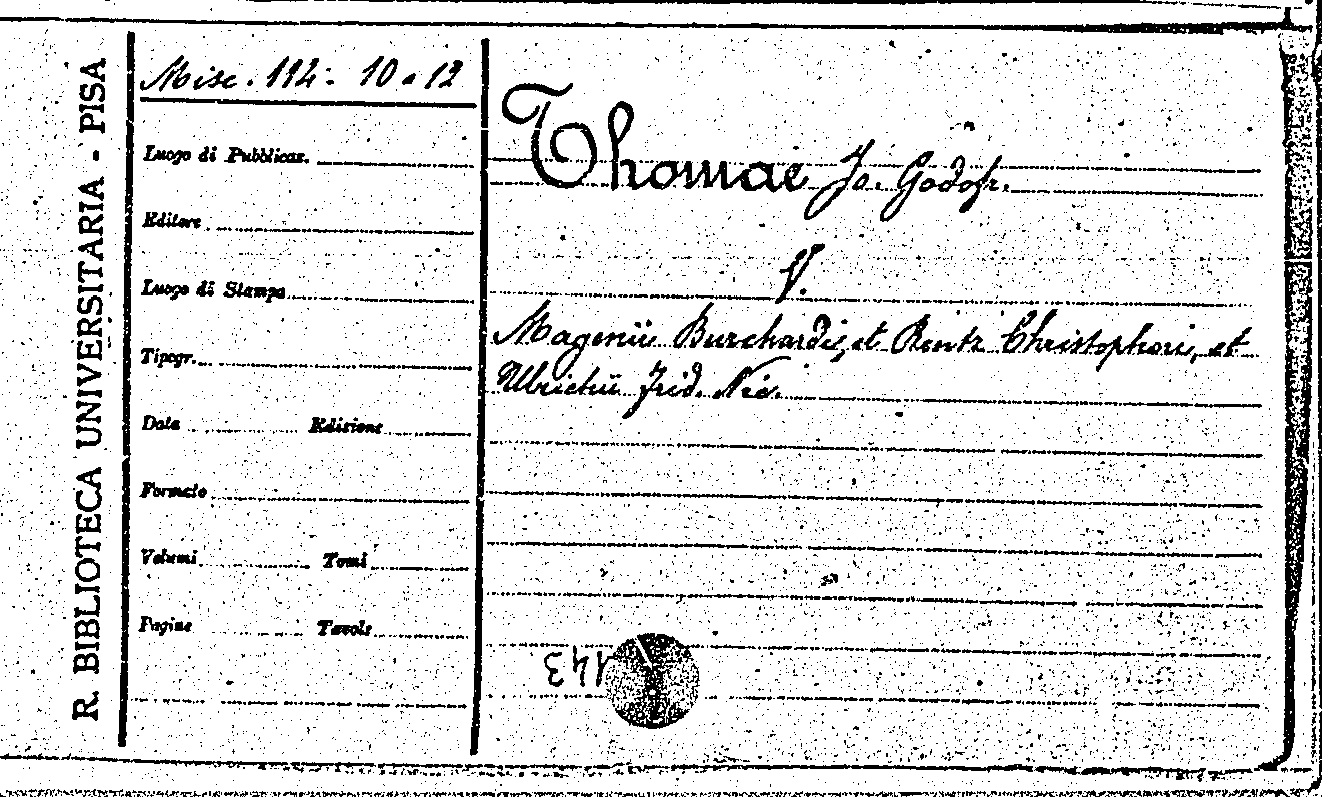 R. BIBLIOTECA UNIVERSITARIA - PISA
Misc. 114. 10 • 12
Luogo di Pubblicaz.
Editore
Luogo di Stampa
Tipogr.
Data Edizione
Formato
Volumi Tomi
Pagine Tavole
Thomae Jo. Godofr.
V.
Magenii Burchardi, et Rentz Christophori, et
Ulrichii Frid. Nic.
143